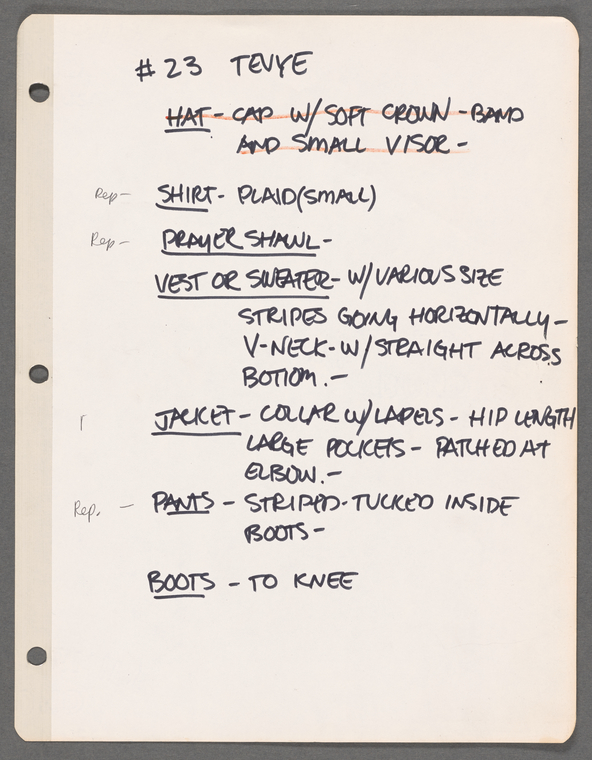 # 23 TEVYE
HAT - CAP W/ SOFT CROWN - BAND
AND SMALL VISOR -
Rep - SHIRT - PLAID (SMALL)
Rep - PRAYER SHAWL -
VEST OR SWEATER - W/ VARIOUS SIZE
STRIPES GOING HORIZONTALLY -
V-NECK - W/ STRAIGHT ACROSS
BOTTOM. -
r JACKET - COLLAR W/ LAPELS - HIP LENGTH
LARGE POCKETS - PATCHED AT
ELBOW. -
Rep. - PANTS - STRIPED - TUCKED INSIDE
BOOTS -
BOOTS - TO KNEE